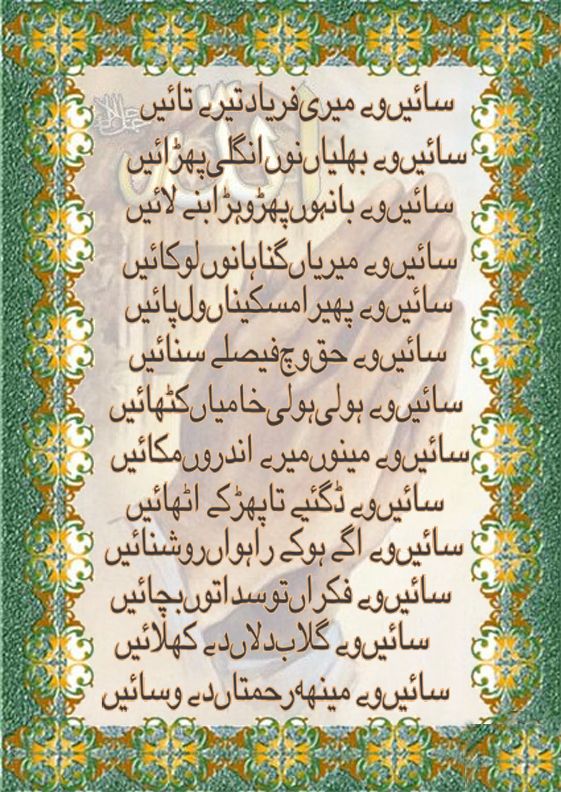 سائیں وے میری فریاد تیرے تائیں
سائیں وے بھلیاں نوں انگلی پھڑائیں
سائیں وے بانہوں پھڑ ویڑا بنے لائیں
سائیں وے میریاں گناہانوں لوکائیں
سائیں وے پھیرا مسکیناں ول پائیں
سائیں وے حق وچ فیصلے سنائیں
سائیں وے ہولی ہولی خامیاں کٹھائیں
سائیں وے مینوں میرے اندروں مکائیں
سائیں وے ڈگئیے تا پھڑ کے اٹھائیں
سائیں وے اگے ہوکے راہواں روشنائیں
سائیں وے فکراں تو سدا توں بچائیں
سائیں وے گلاب دلاں دے کھلائیں
سائیں وے مینھہ رحمتاں دے وسائیں
اللہ
جل جلالہ